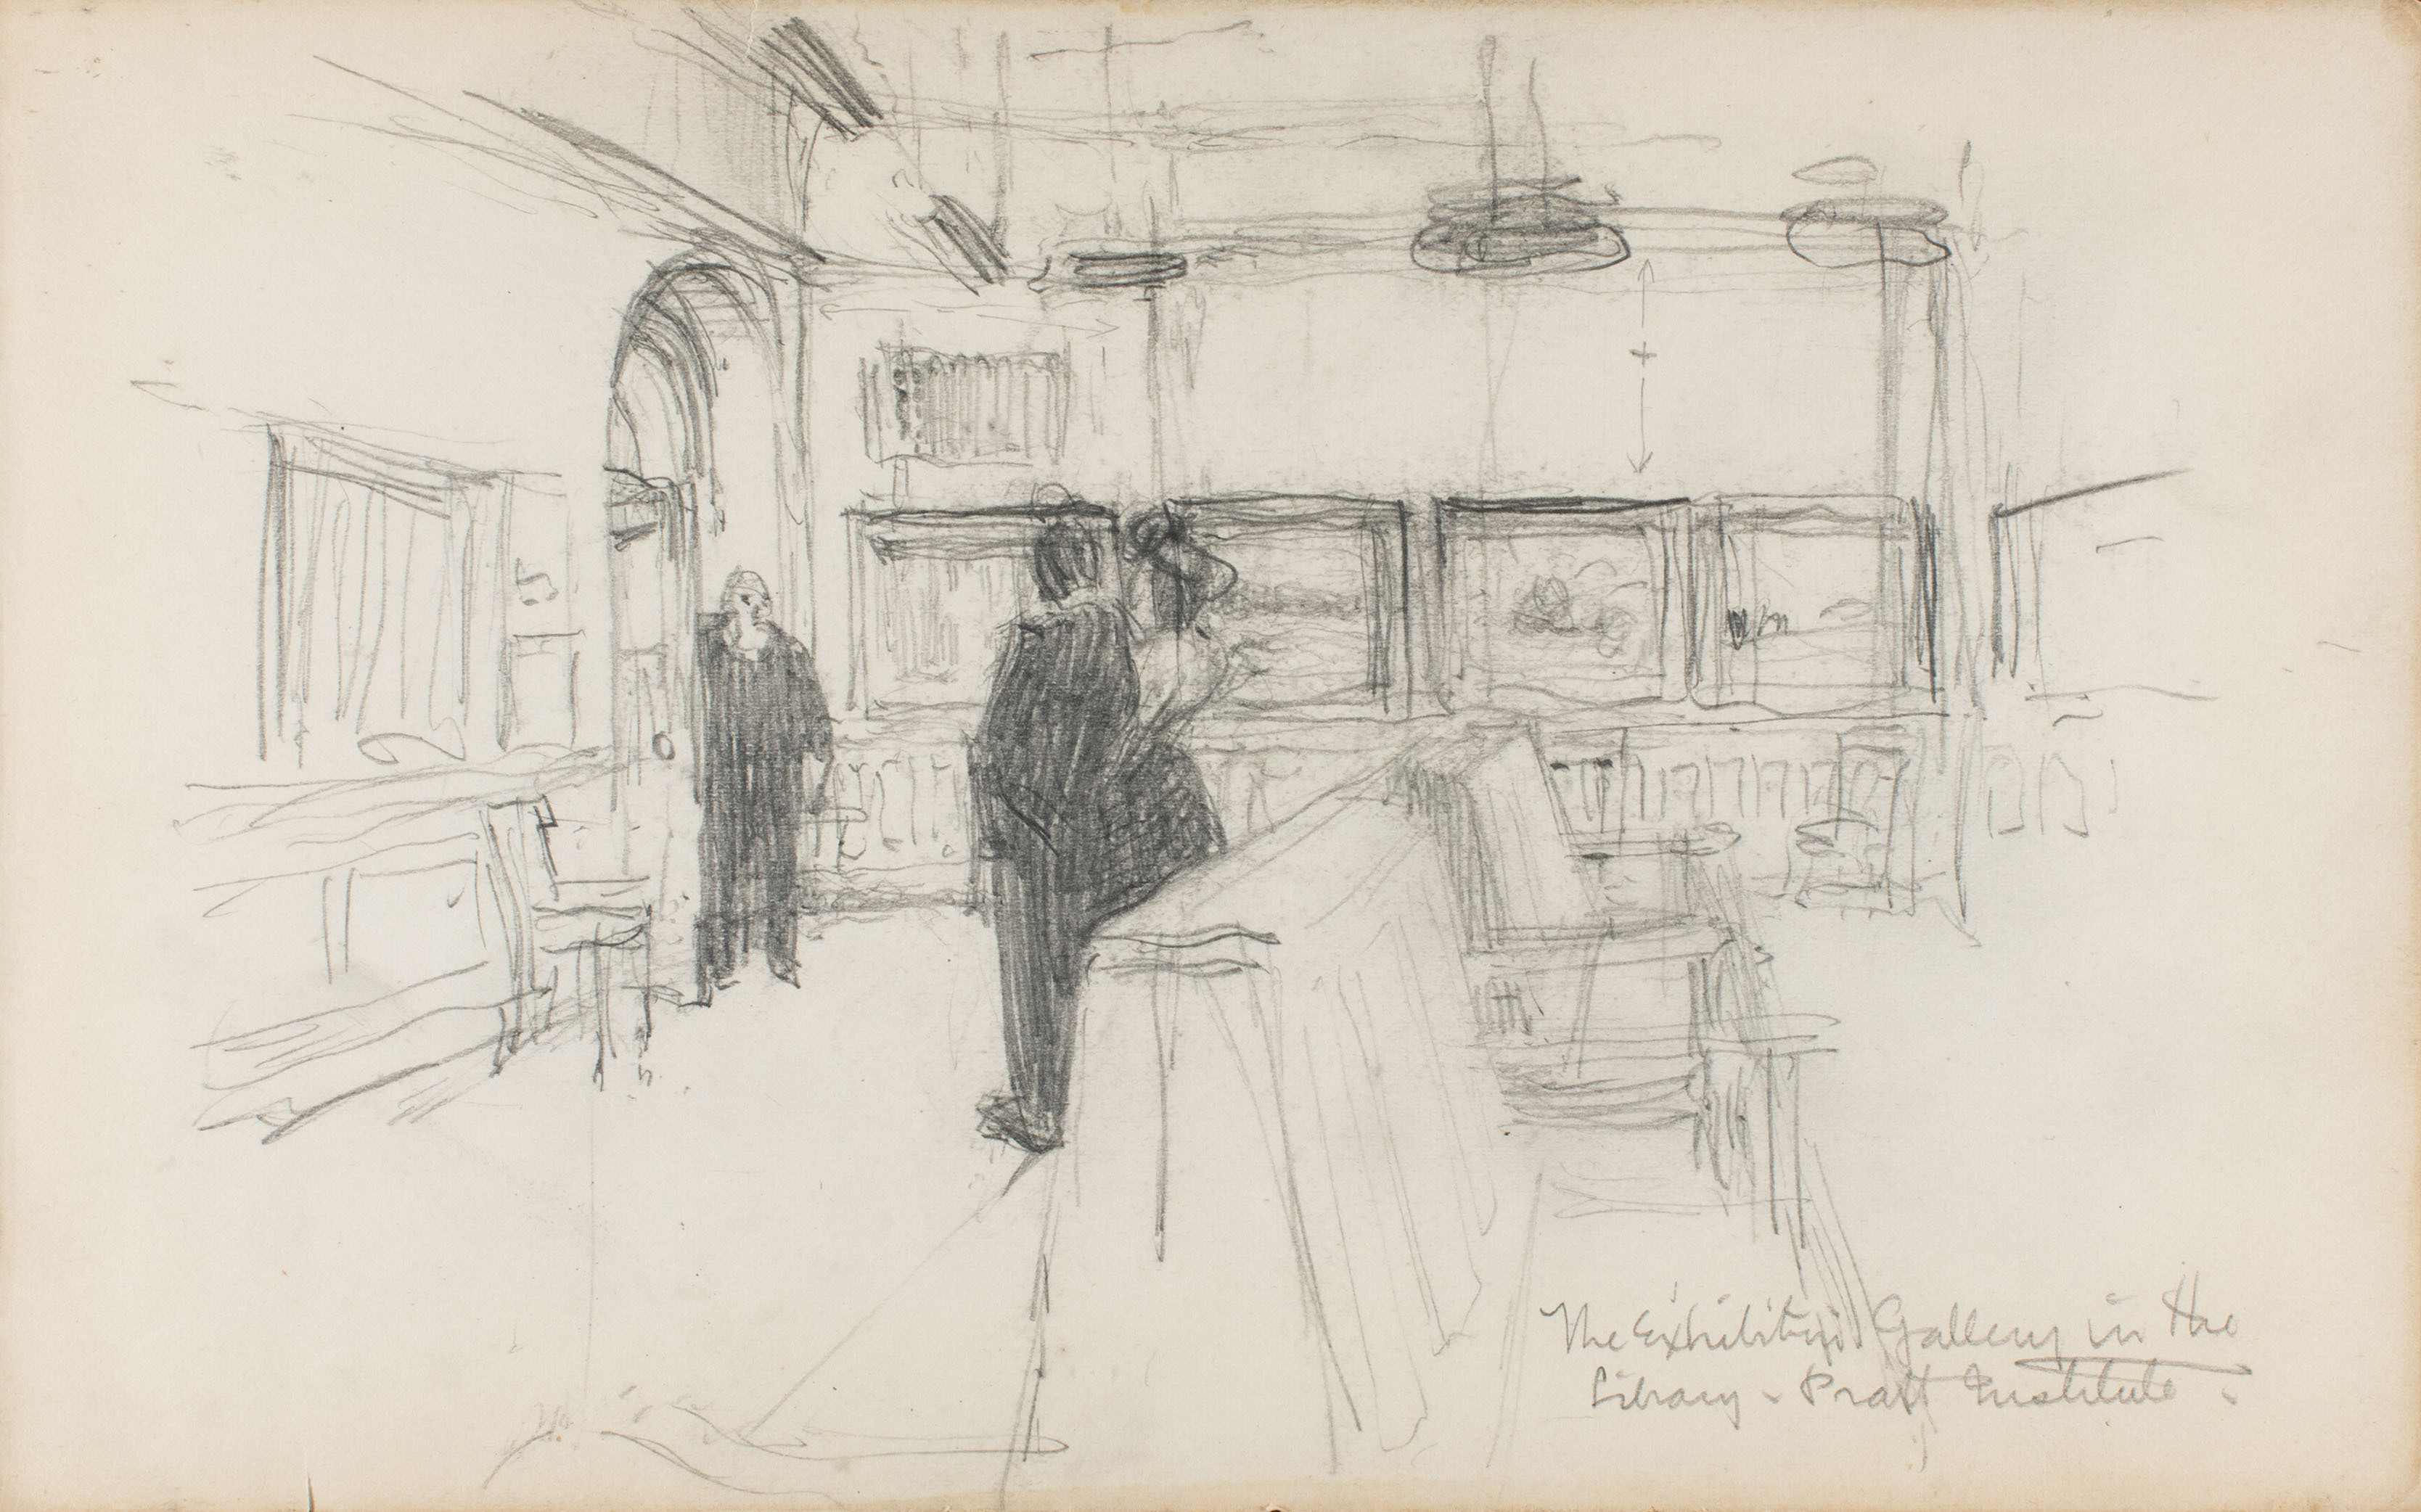 The Exhibition Gallery in the
Library - Pratt Institute -